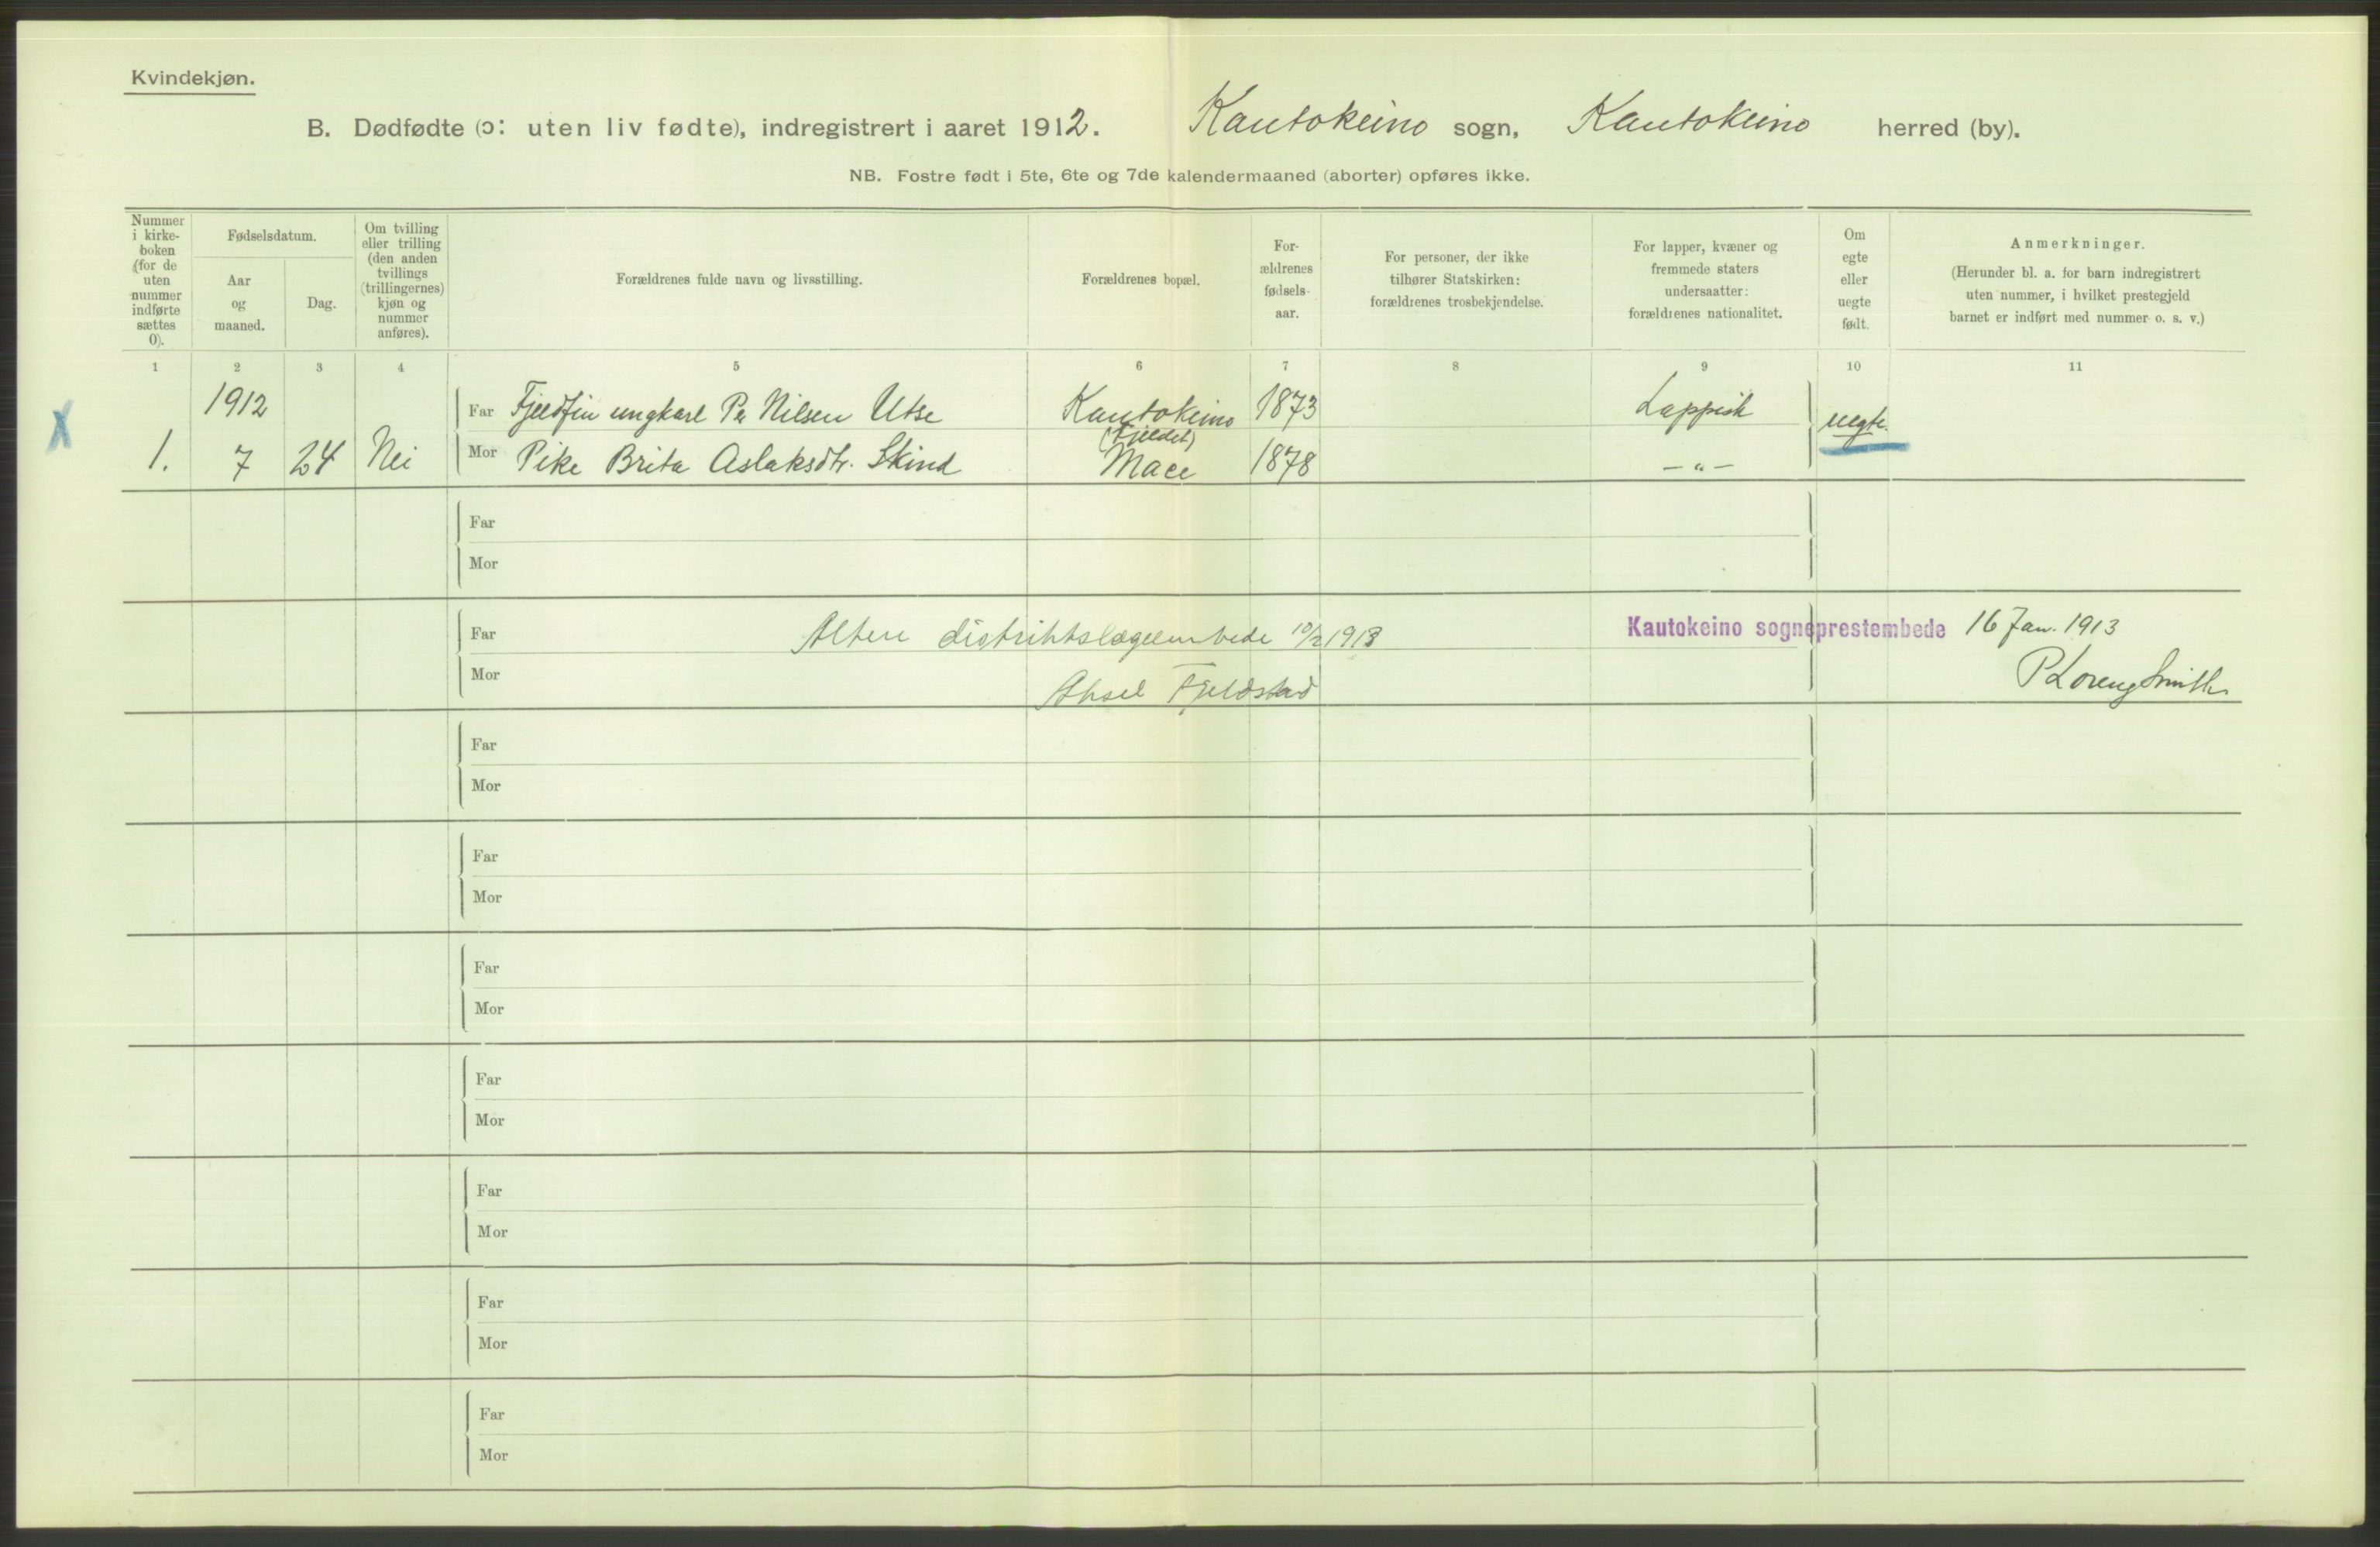 Kvindekjøn.
B. Dødfødte (ɔ: uten liv fødte), indregistrert i aaret 1912. Kautokeino sogn, Kautokeino herred (by).
NB. Fostre født i 5te, 6te og 7de kalendermaaned (aborter) opføres ikke.
Nummer i kirke-boken (for de uten nummer indførte sættes 0).
Fødselsdatum.
Aar og maaned.
Dag.
Om tvilling eller trilling (den anden tvillings (trillingernes) kjøn og nummer anføres).
Forældrenes fulde navn og livsstilling.
Forældrenes bopæl.
For-ældrenes fødsels-aar.
For personer, der ikke tilhører Statskirken: forældrenes trosbekjendelse.
For lapper, kvæner og fremmede staters undersaatter: forældrenes nationalitet.
Om egte eller uegte født.
Anmerkninger.
(Herunder bl. a. for barn indregistrert uten nummer, i hvilket prestegjeld barnet er indført med nummer o. s. v.)
1 2 3 4 5 6 7 8 9 10 11
1912 Far Fjeldfin ungkarl Per Nilsen Utse Kautokeino 1873 Lappisk uegte.
(Fjeldet)
X 1. 7 24 Nei Mor Pike Brita Aslaksdtr. Skind Mace 1878 — " —
Far
Mor
Far Alten distriktslægeembede 10/2 1913 Kautokeino sogneprestembede 16 Jan. 1913
Mor Aksel Fjeldstad P Lorenz Smith
Far
Mor
Far
Mor
Far
Mor
Far
Mor
Far
Mor
Far
Mor
Far
Mor